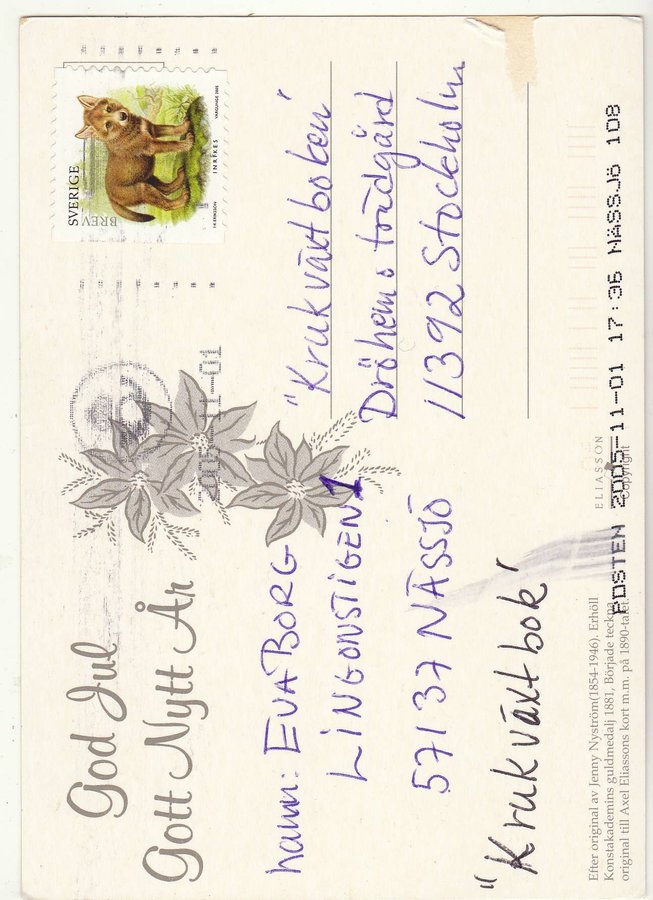 God Jul
Gott Nytt År
namn: EVA BORG
LINGONSTIGEN 1
57137 NÄSSJÖ
"Krukväxtbok"
SVERIGE
BREV
INRIKES
"Krukväxtboken"
Dröhems trädgård
11392 Stockholm
ELIASSON
Copyright
Efter original av Jenny Nyström(1854-1946). Erhöll
Konstakademins guldmedalj 1881, Började teckna
original till Axel Eliassons kort m.m. på 1890-talet.
POSTEN 2005-11-01 17:36 NÄSSJÖ 108